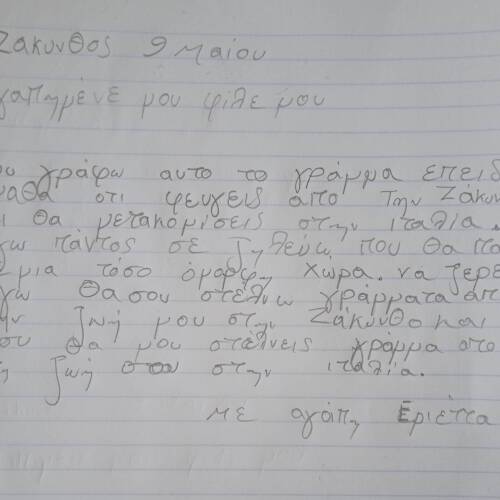 Ζάκυνθος 9 μαιου
γαπημένε μου φίλε μου
ου γράφω αυτο το γράμμα επειδ
μαθα οτι φευγεις απο την Ζάκυν
ι θα μετακομίσεις στην ιταλία.
γω πάντος σε ζηλεύω που θα πα
ε μια τόσο όμορφη χώρα. να ξερε
γω θα σου στέλνω γράμματα απ
ην ζωή μου στην Ζάκυνθο και
συ θα μου στέλνεις γραμμα απο
η ζωή σου στην ιταλία.
με αγάπη Εριέττα